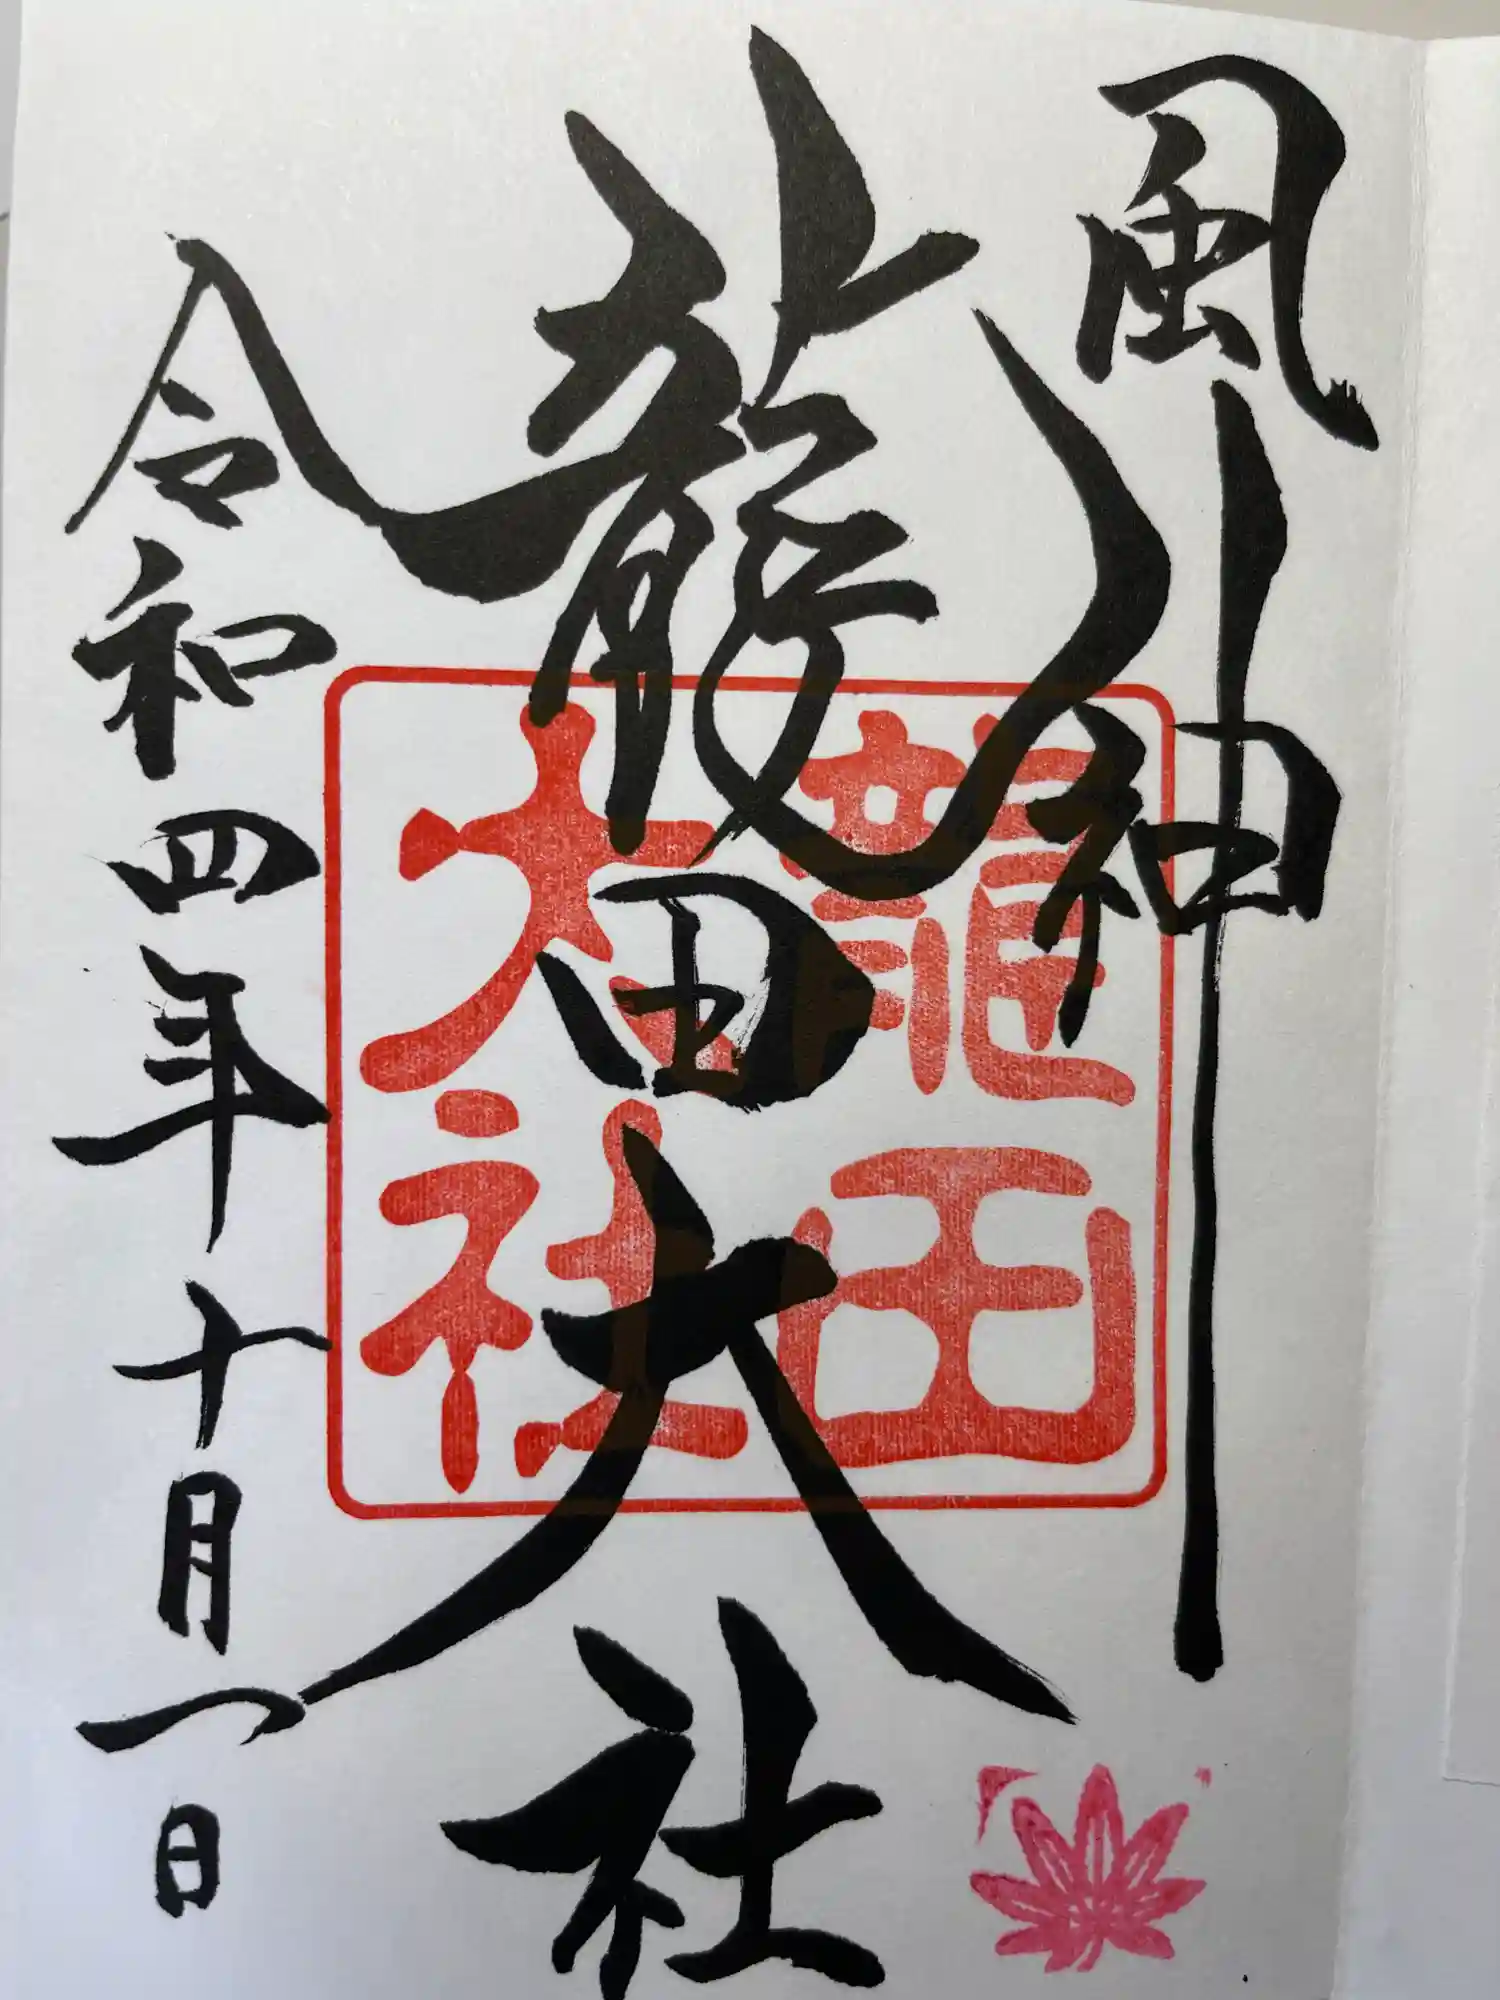 風神
龍田大社
龍田
大社
令和四年十月一日